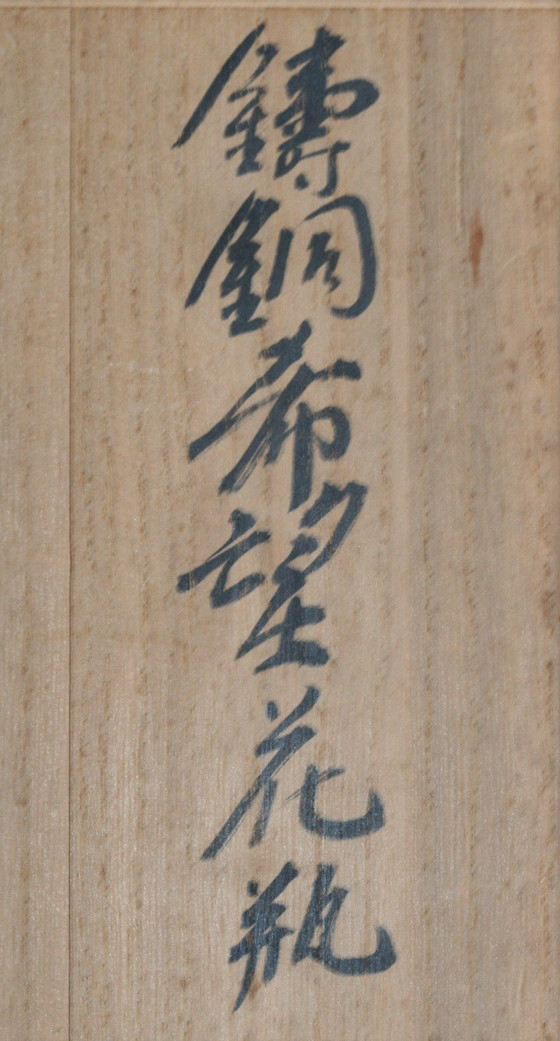 鑄銅希望花瓶